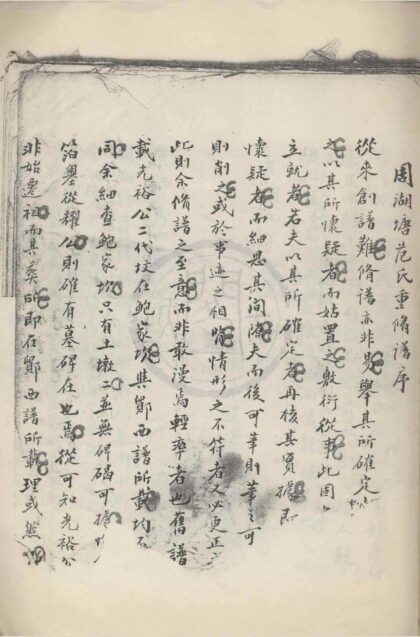 周湖塘范氏重脩譜序
從來創譜難脩譜亦非易舉其所確定
之以其所懷疑者而姑置之敷衍從事此固
立就者若夫以其所確定者再核其實據
懷疑者而細思其間隙夫而後可筆則筆之可
則削之或於事迹之相情形之不符者又必更正
此則余脩譜之至意而非敢漫為輕率者也舊譜
載光裕公二代坟在鮑家㘭與鄒西譜所載均不
同余細查鮑家㘭只有土墩二並無碑碣可據
箔壆從耀公則確有墓碑在也焉從可知光裕公
非始遷祖而其葬所即在鄒西譜所載理或然